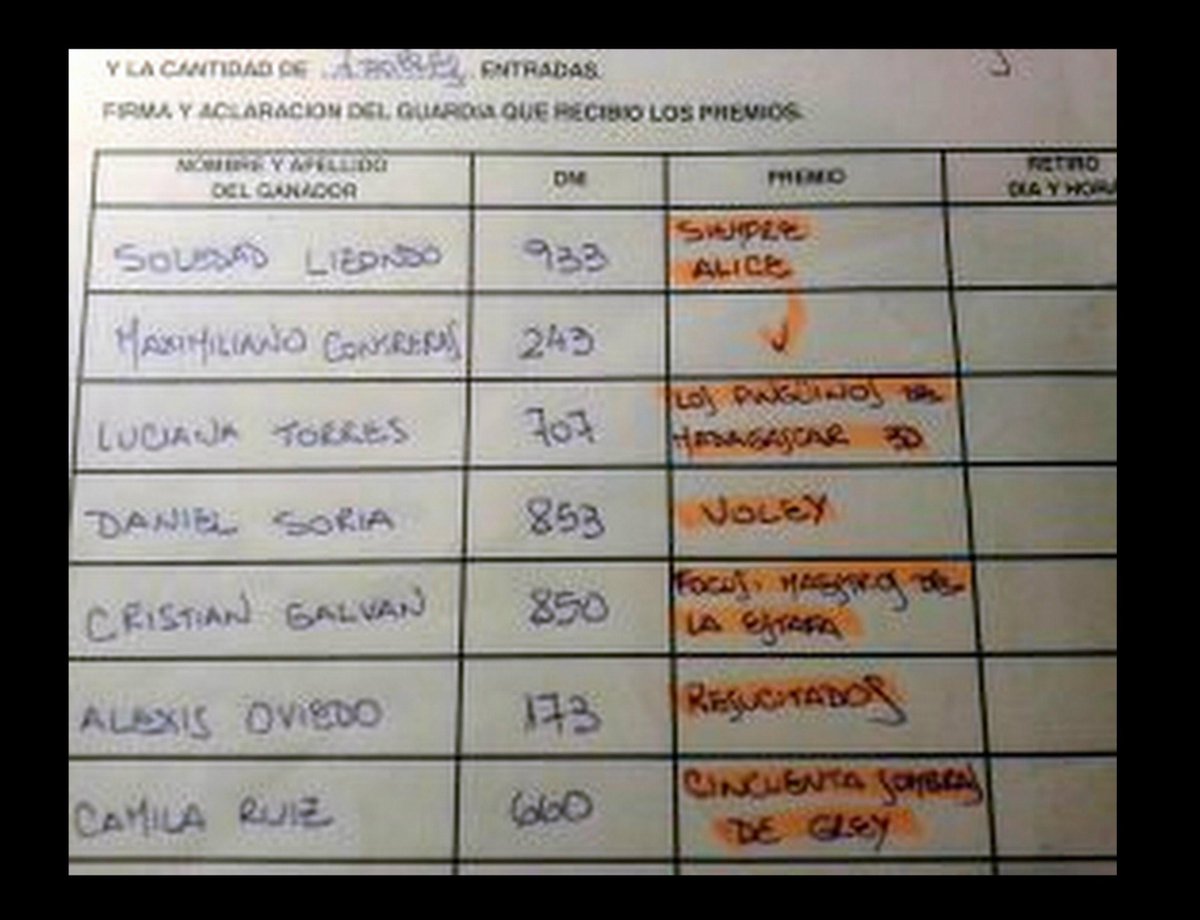 Y LA CANTIDAD DE ENTRADAS.
FIRMA Y ACLARACION DEL GUARDIA QUE RECIBIO LOS PREMIOS.
NOMBRE Y APELLIDO
DEL GANADOR
DNI
PREMIO
RETIRO
DIA Y HORA
SOLEDAD LIZONDO 933 SIEMPRE
ALICE
MAXIMILIANO CONTRERAS 243
LUCIANA TORRES 707 LOS PINGÜINOS DE
MADAGASCAR 3D
DANIEL SORIA 853 VOLEY
CRISTIAN GALVAN 850 FOCUS: MAESTROS DE
LA ESTAFA
ALEXIS OVIEDO 173 RESUCITADOS
CAMILA RUIZ 660 CINCUENTA SOMBRAS
DE GREY